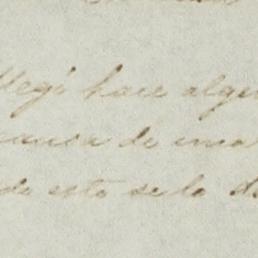 llegó hace algu
causa de una
de esto se lo d